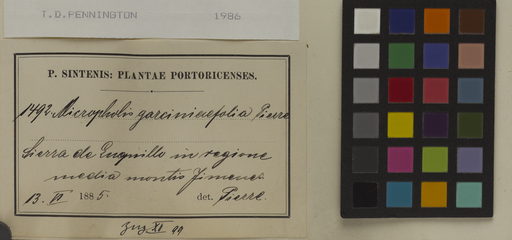 T.D. PENNINGTON 1986
P. SINTENIS: PLANTAE PORTORICENSES.
1492 Micropholis garciniaefolia Pierre
Sierra de Luquillo in regione
media montis Jimenes
13. VI 1885. det. Pierre.
XI 99